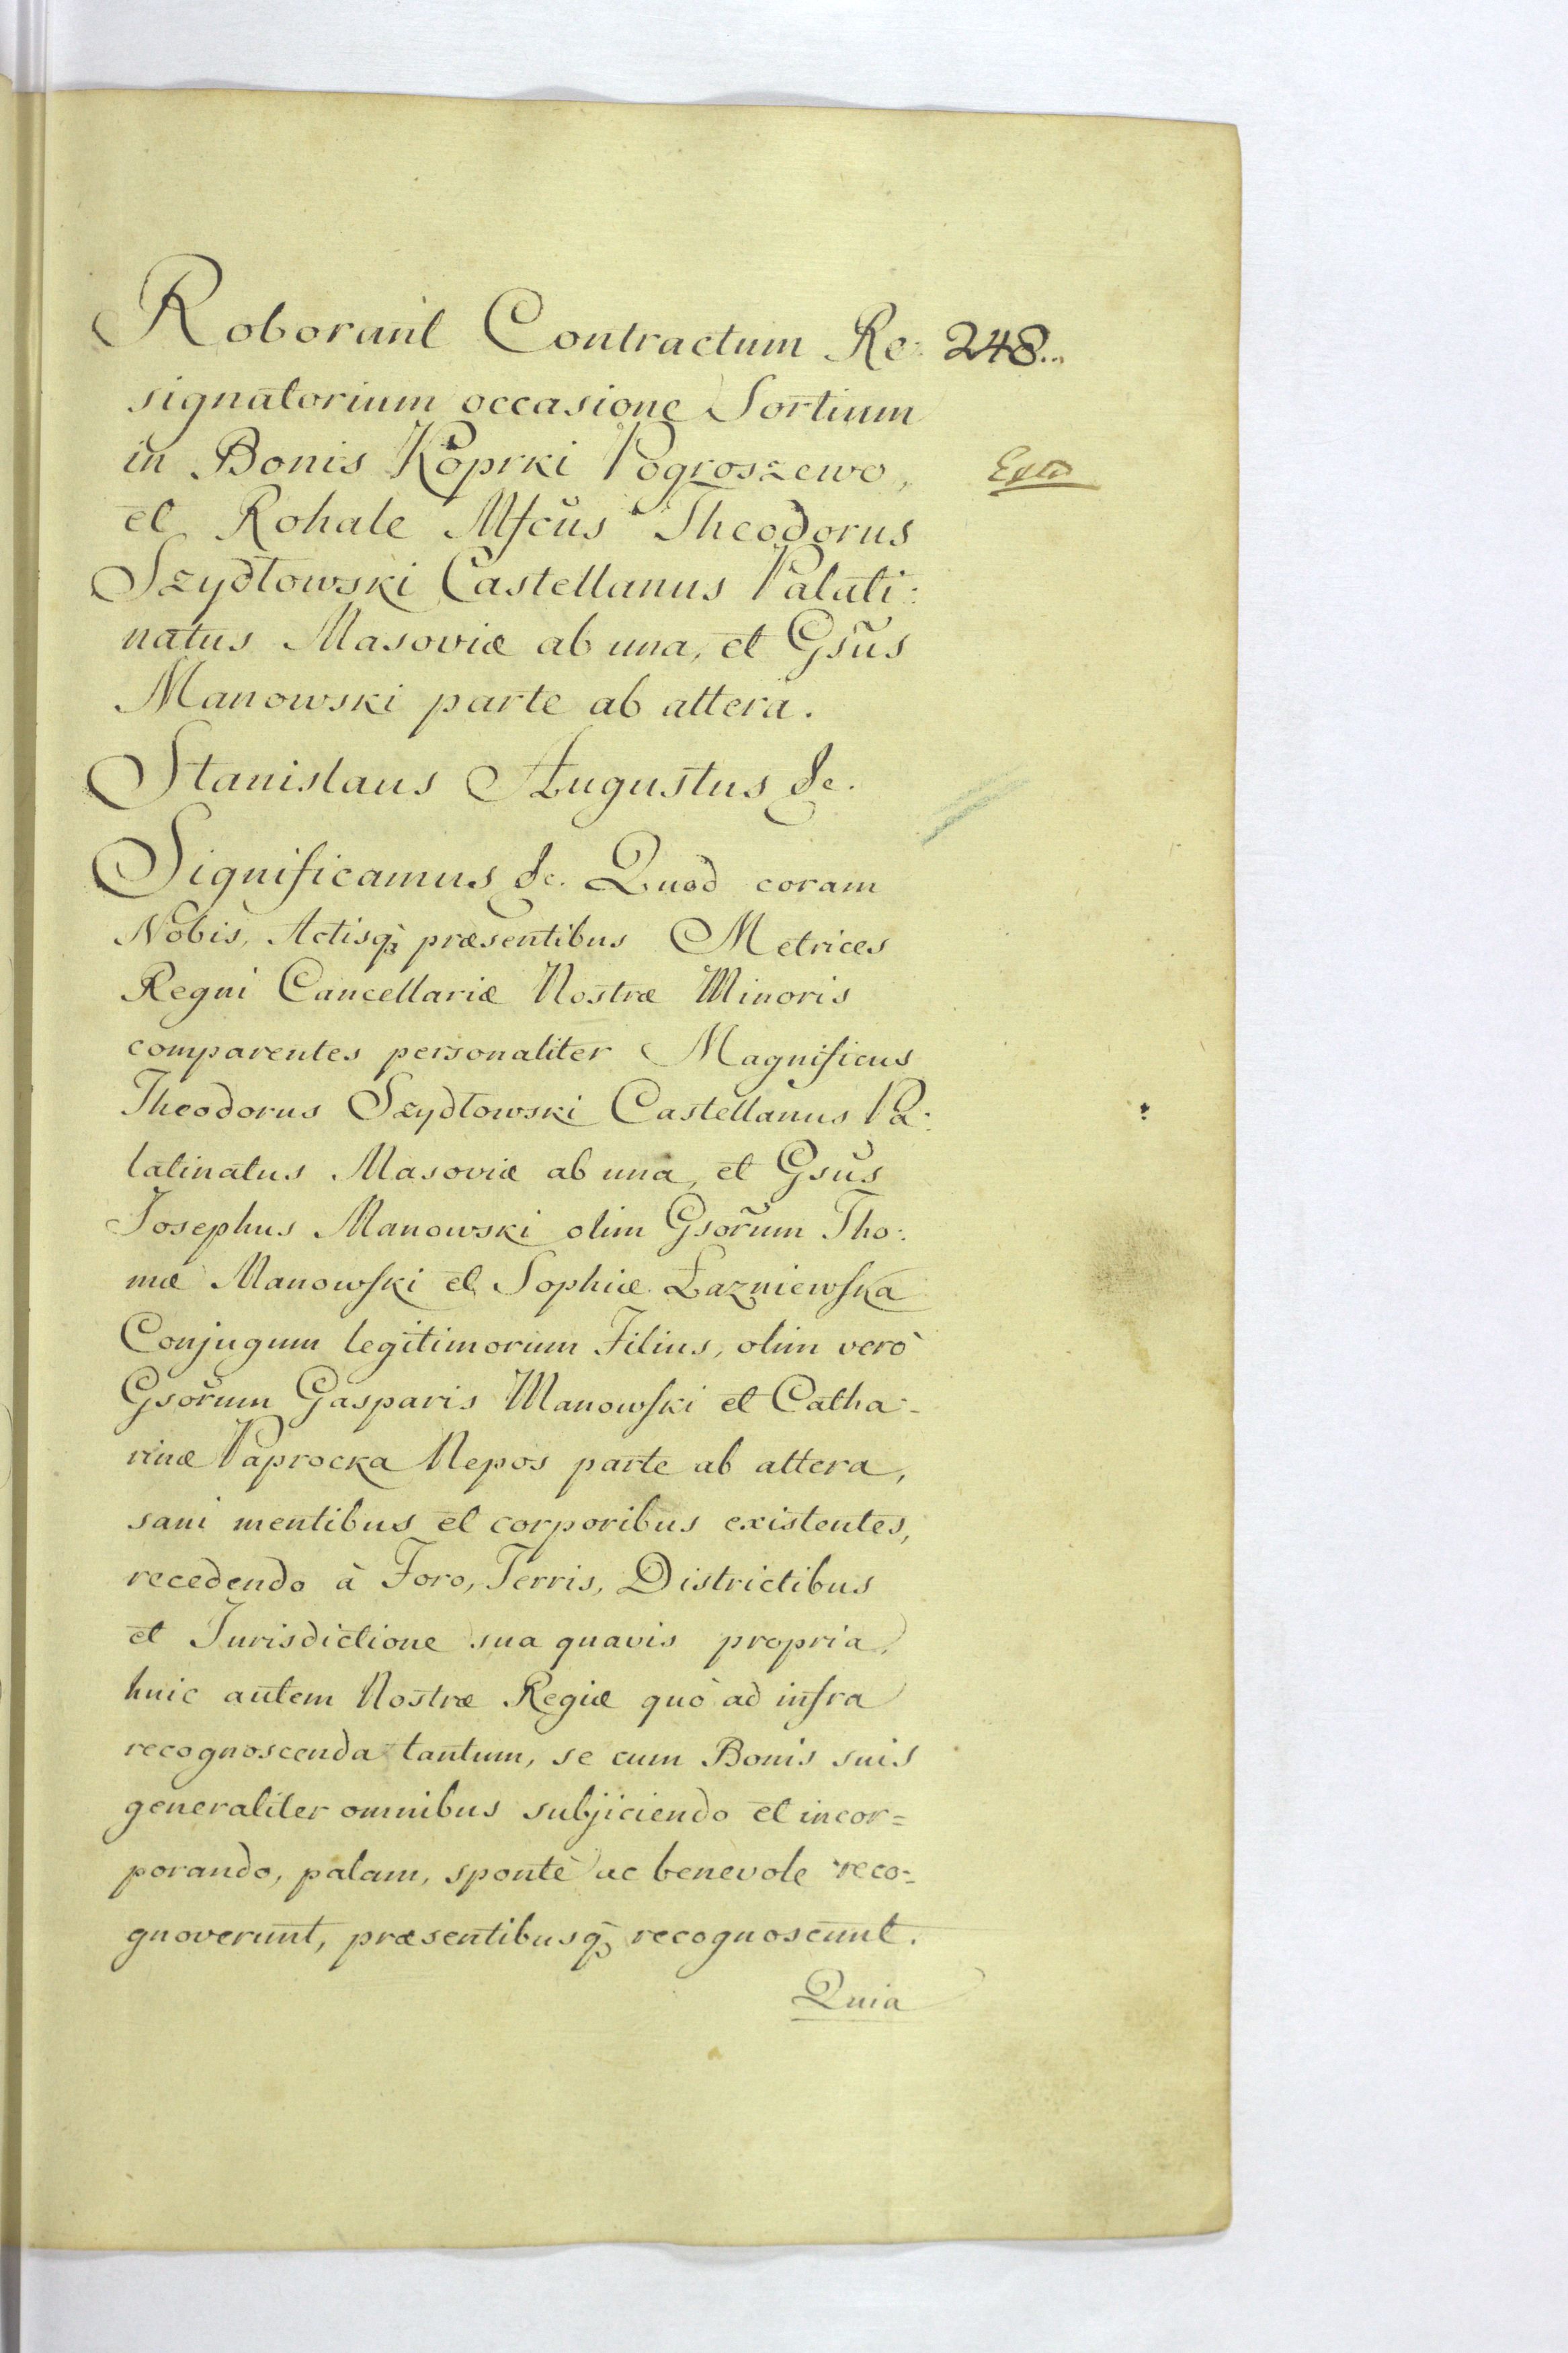 Roborant Contractum Re: 248...
signatorium occasione Sortium
in Bonis Koprki Pogroszewo,
et Rohale Mfcus Theodorus
Szydłowski Castellanus Palati:
natus Masoviæ ab una, et Gsus
Manowski parte ab altera.
Stanislaus Augustus &c.
Significamus &c. Quod coram
Nobis, Actisq3 præsentibus Metrices
Regni Cancellariæ Nostræ Minoris
comparentes personaliter Magnificus
Theodorus Szydłowski Castellanus Pa:
latinatus Masoviæ ab una, et Gsus
Josephus Manowski olim Gsorum Tho:
mæ Manowski et Sophiæ Łazniewska
Conjugum legitimorum Filius, olim verò
Gsorum Gasparis Manowski et Catha-
rinæ Paprocka Nepos parte ab altera,
sani mentibus et corporibus existentes,
recedendo à Foro, Terris, Districtibus
et Jurisdictione sua quavis propria,
huic autem Nostræ Regiæ quò ad infra
recognoscenda tantum, se cum Bonis suis
generaliter omnibus subjiciendo et incor=
porando, palam, sponte ac benevole reco-
gnoverunt, præsentibusq3 recognoscunt.
Quia